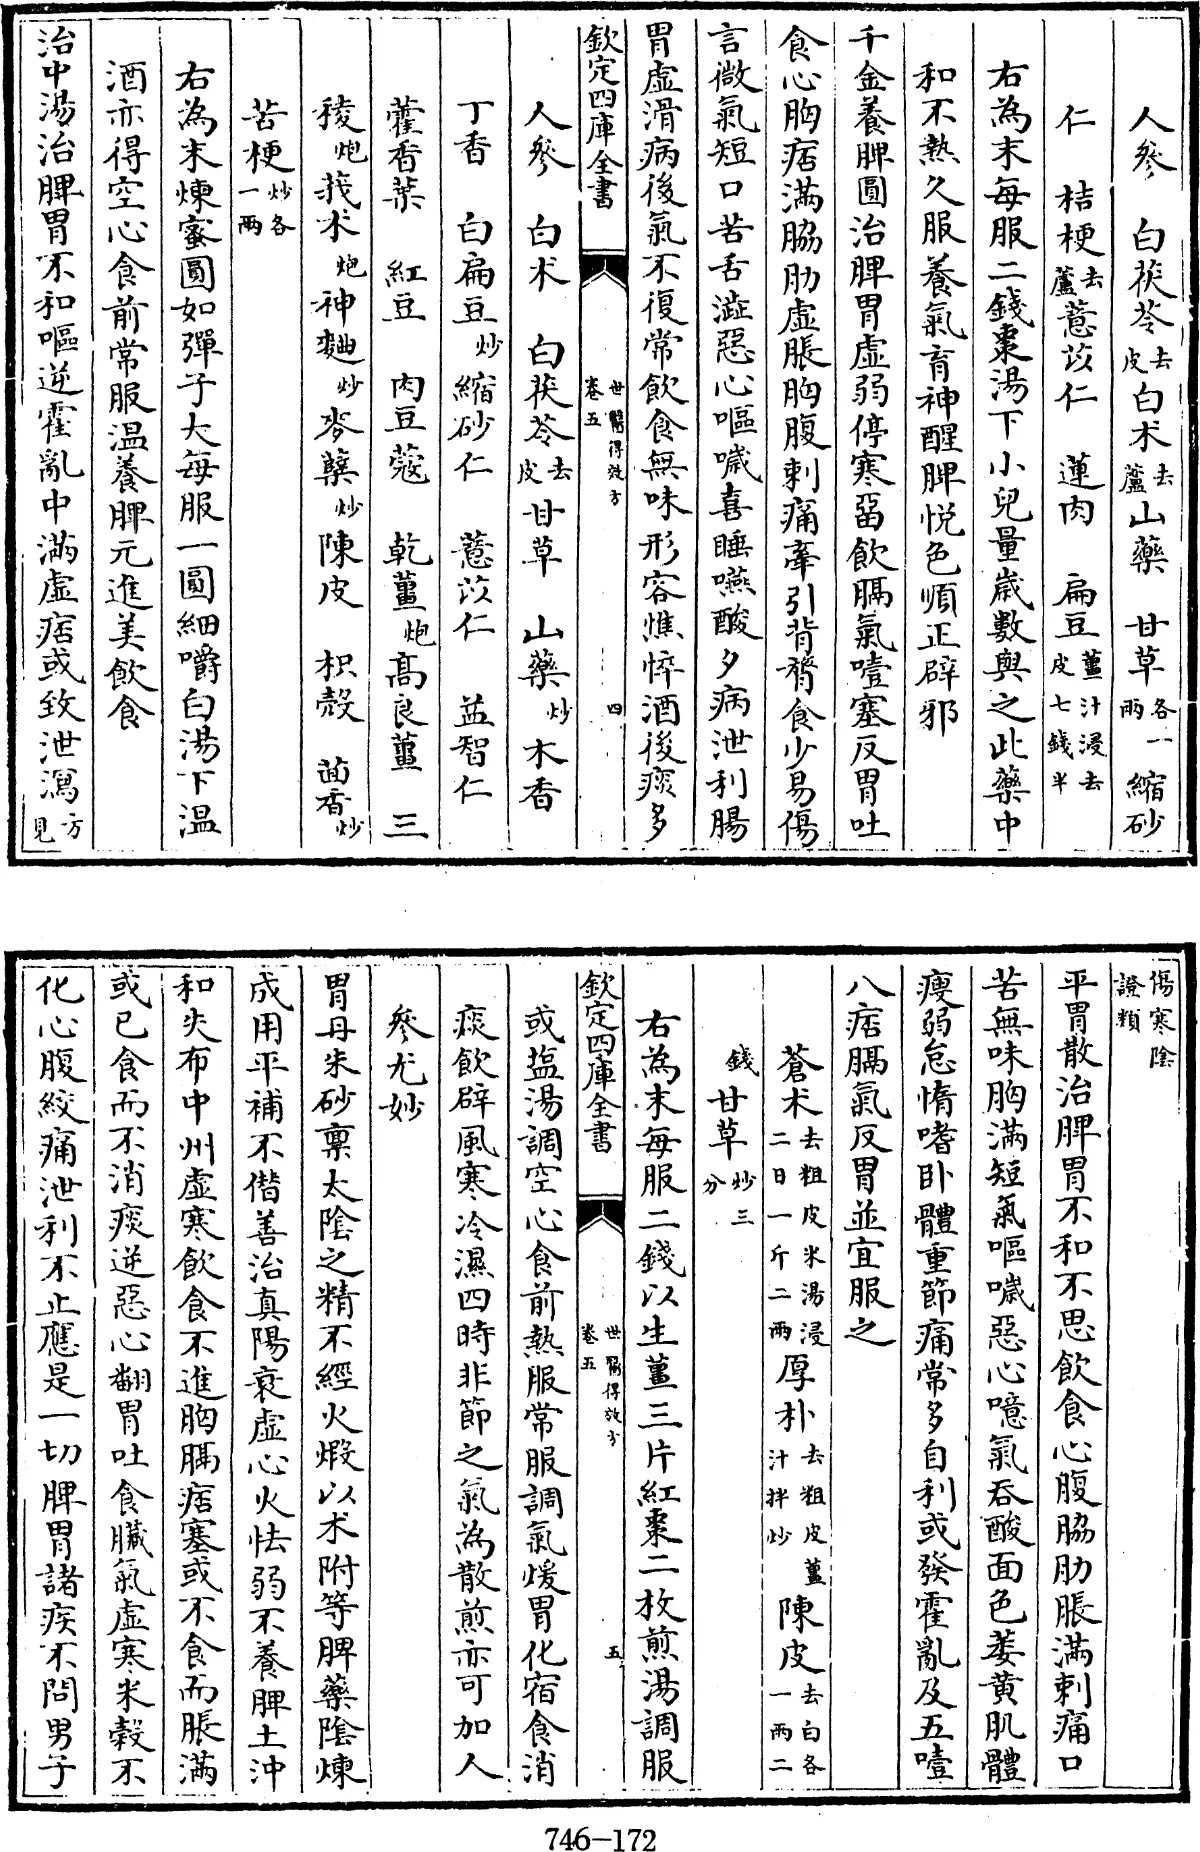 人參 白茯苓去皮白术去蘆山藥 甘草各一兩縮砂
仁 桔梗去蘆薏苡仁 蓮肉 扁豆薑汁浸去皮七錢半
右為末每服二錢棗湯下小兒量歲數與之此藥中
和不熱久服養氣育神醒脾悅色順正辟邪
千金養脾圓治脾胃虛弱停寒留飲膈氣噎塞反胃吐
食心胸痞滿脇肋虛脹胸腹刺痛牽引背膂食少易傷
言微氣短口苦舌澁惡心嘔噦喜睡嚥酸夕病泄利腸
胃虛滑病後氣不復常飲食無味形容憔悴酒後痰多
欽定四庫全書 世醫得效方卷五 四
人參 白术 白茯苓去皮甘草 山藥炒木香
丁香 白扁豆炒縮砂仁 薏苡仁 益智仁
藿香葉 紅豆 肉豆蔻 乾薑炮高良薑 三
稜炮莪术炮神麯炒麥糵炒陳皮 枳殼 茴香炒
苦梗炒各一兩
右為末煉蜜圓如彈子大每服一圓細嚼白湯下温
酒亦得空心食前常服温養脾元進美飲食
治中湯治脾胃不和嘔逆霍亂中滿虛痞或致泄瀉方見
傷寒陰證類
平胃散治脾胃不和不思飲食心腹脇肋脹滿刺痛口
苦無味胸滿短氣嘔噦惡心噫氣吞酸面色萎黄肌體
瘦弱怠惰嗜卧體重節痛常多自利或發霍亂及五噎
八痞膈氣反胃並宜服之
蒼术去粗皮米湯浸二日一斤二兩厚朴去粗皮薑汁拌炒陳皮去白各一兩二
錢甘草炒三分
右為末每服二錢以生薑三片紅棗二枚煎湯調服
欽定四庫全書 世醫得效方卷五 五
或盐湯調空心食前熱服常服調氣煖胃化宿食消
痰飲辟風寒冷濕四時非節之氣為散煎亦可加人
參尤妙
胃丹朱砂禀太陰之精不經火煅以术附等脾藥陰煉
成用平補不僭善治真陽衰虛心火怯弱不養脾土沖
和失布中州虛寒飲食不進胸膈痞塞或不食而脹滿
或已食而不消痰逆惡心翻胃吐食臟氣虛寒米穀不
化心腹絞痛泄利不止應是一切脾胃諸疾不問男子
746-172